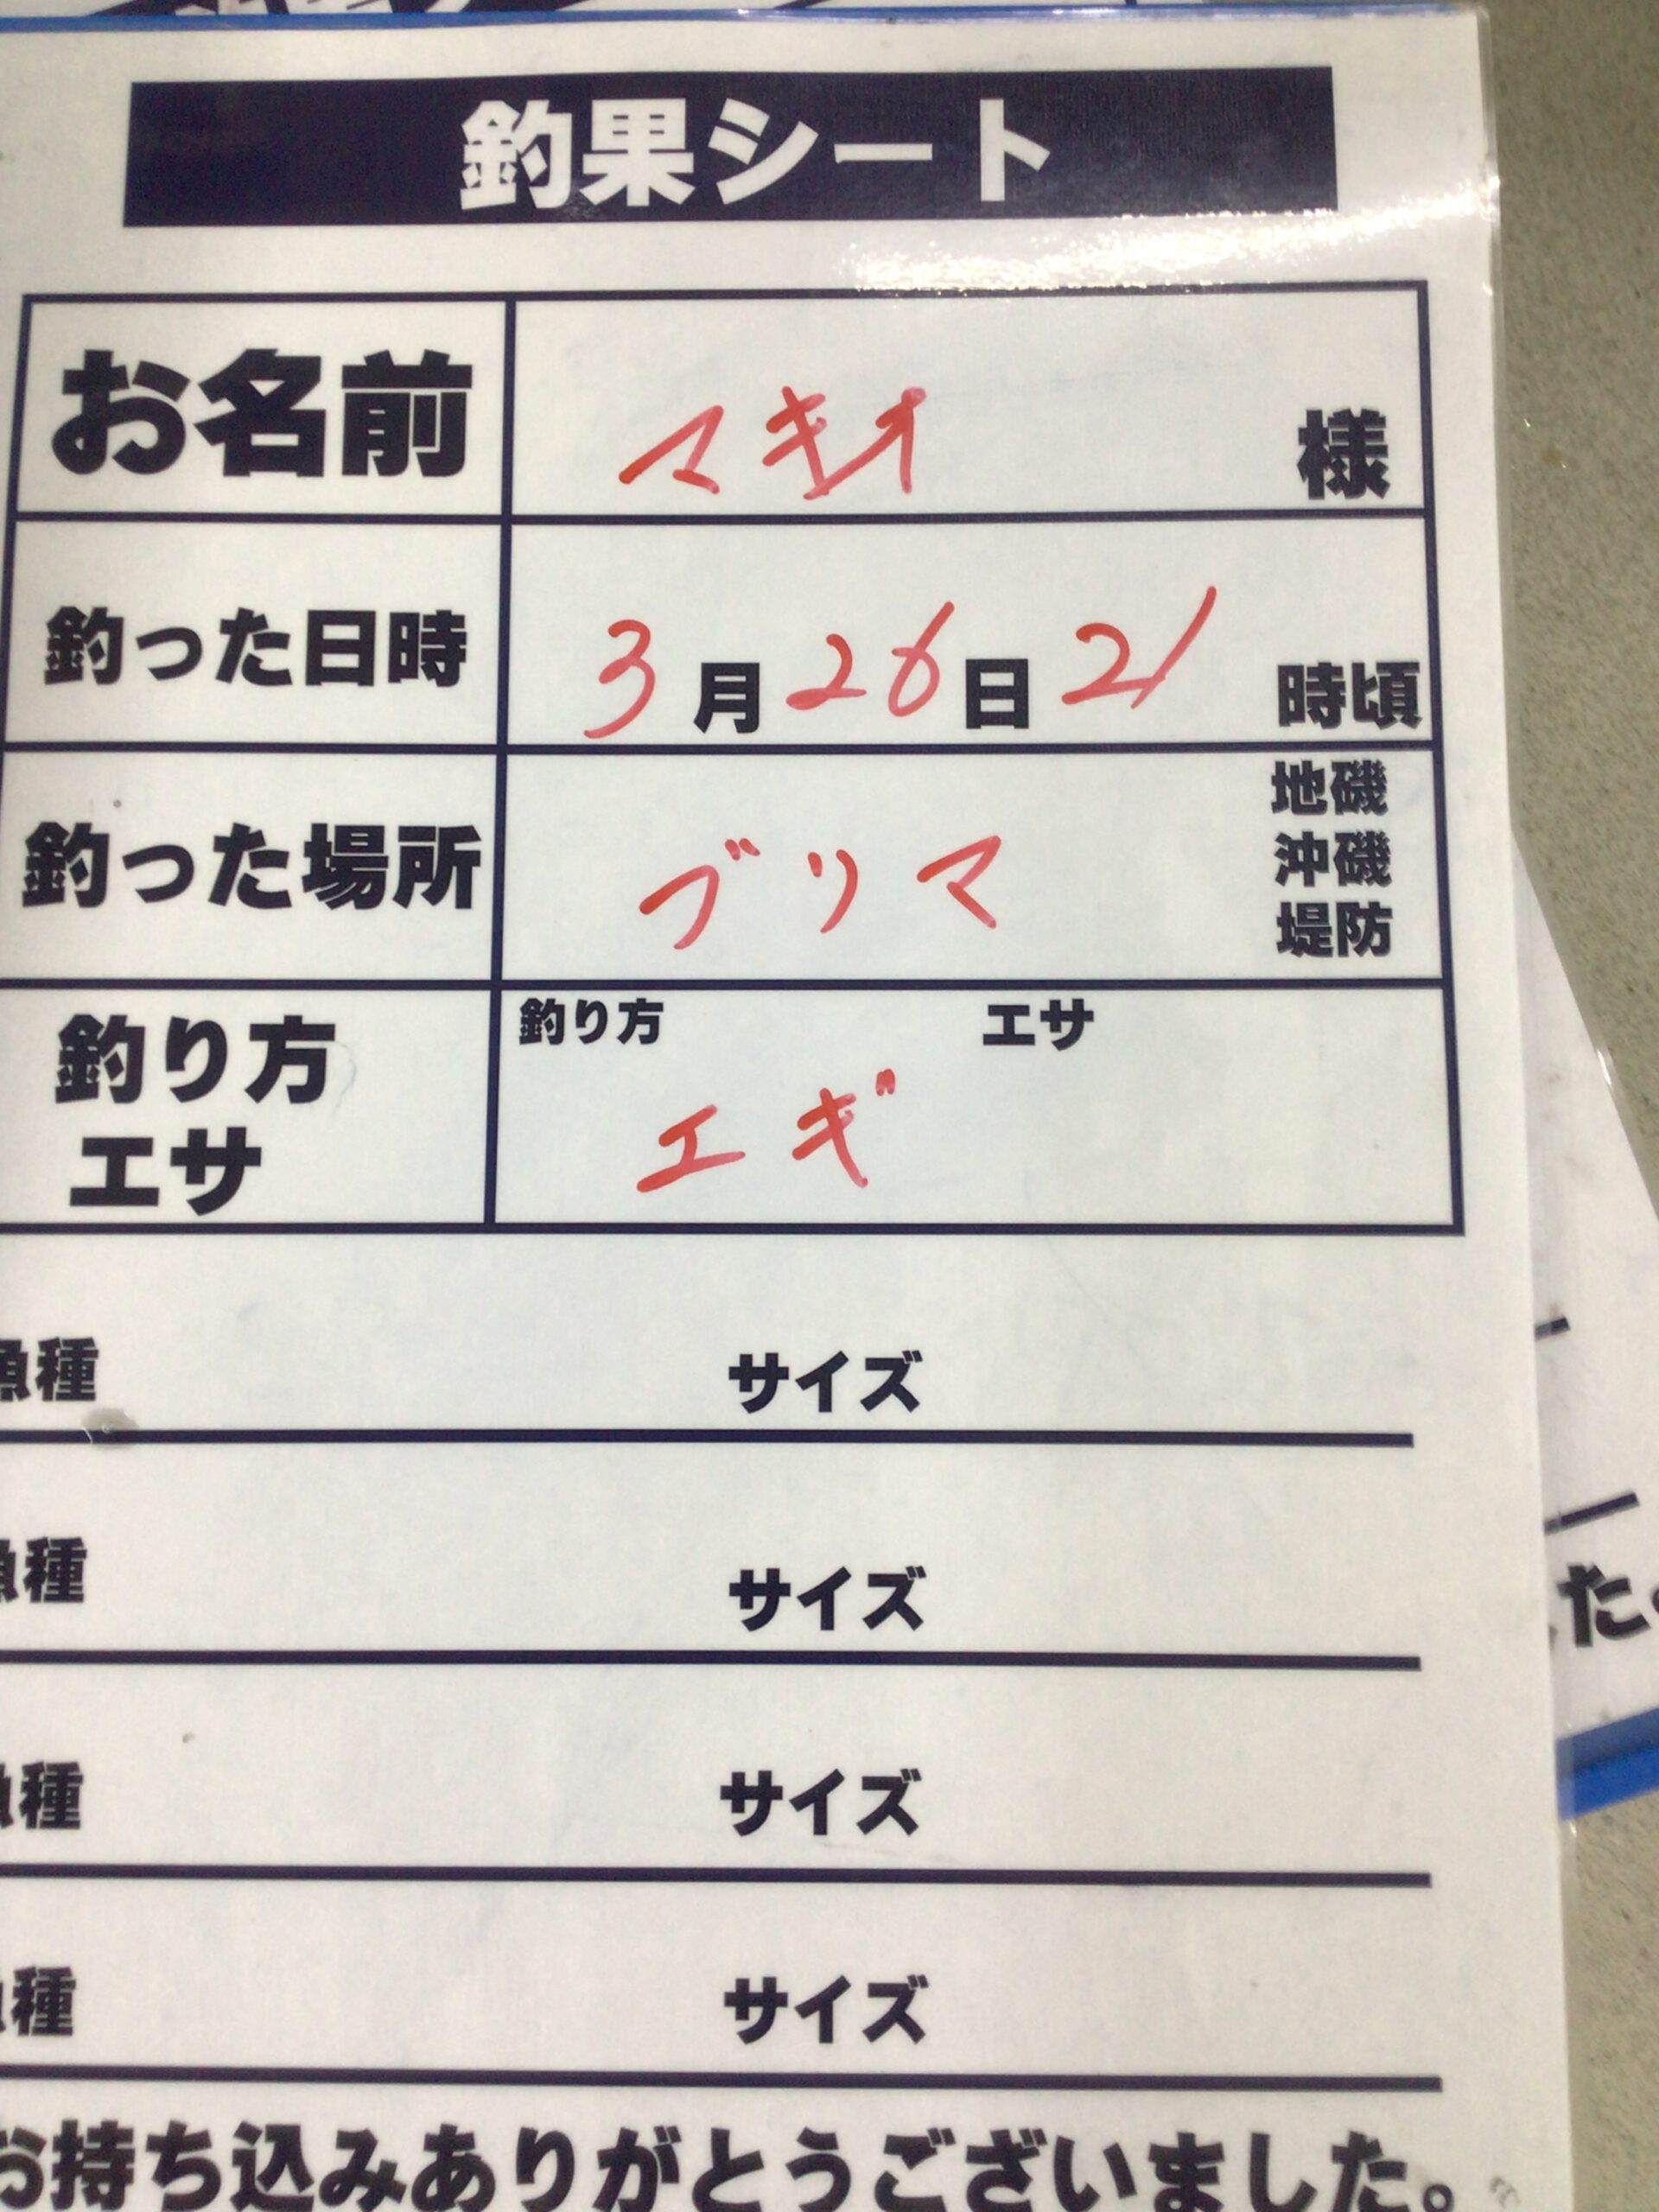 釣果シート
お名前 マキオ 様
釣った日時 3月26日21時頃
釣った場所 ブリマ 地磯 沖磯 堤防
釣り方 エサ 釣り方 エギ エサ
魚種 サイズ
魚種 サイズ
魚種 サイズ
魚種 サイズ
お持ち込みありがとうございました。
た。